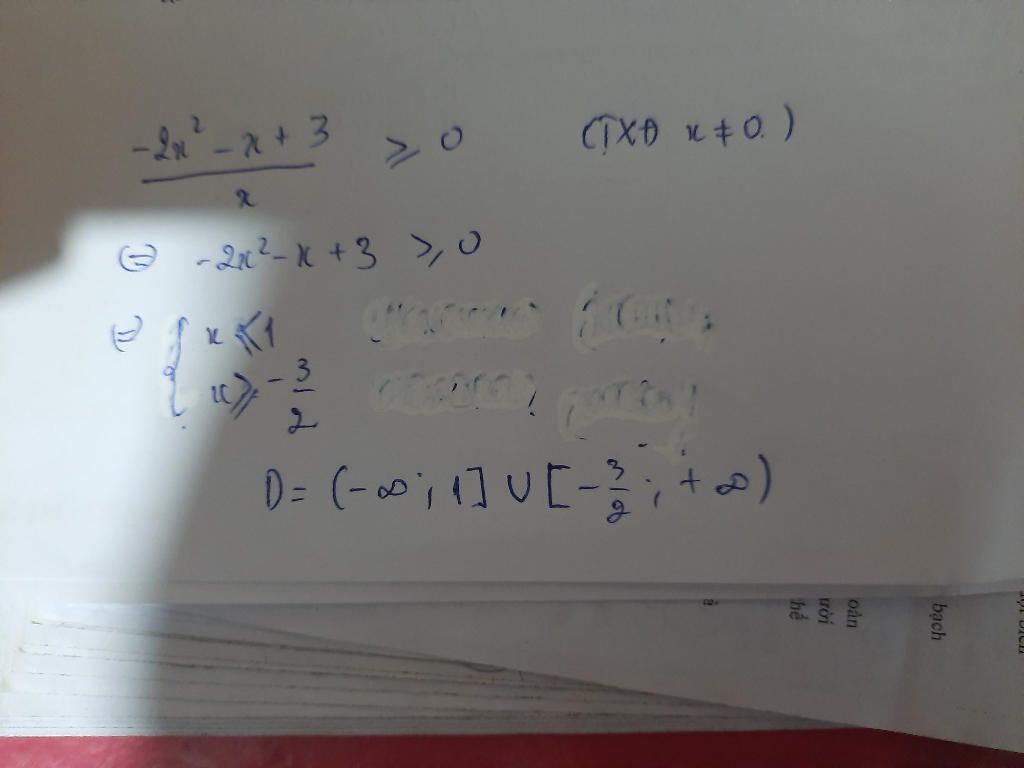 -2x² - x + 3 / x ≥ 0 (TXĐ x ≠ 0.)
⇔ -2x² - x + 3 ≥ 0
⇔ { x ≤ 1
x ≥ -3/2
D = (-∞; 1] ∪ [-3/2; +∞)
ười
hể
oán
bạch